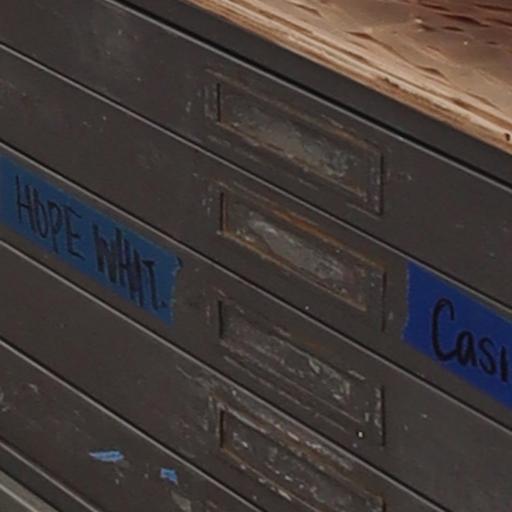 HOPE WHAT.
Casi